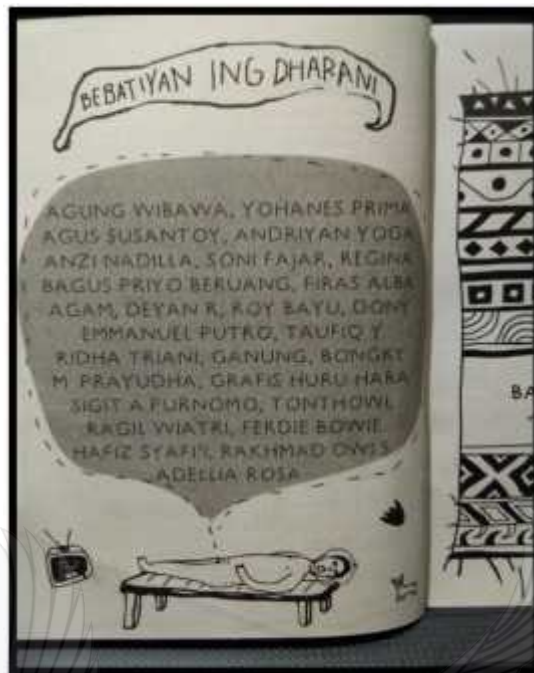 BEBATIYAN ING DHARANI
AGUNG WIBAWA, YOHANES PRIMA
AGUS SUSANTOY, ANDRIYAN YOGA
ANZI NADILLA, SONI FAJAR, REGINA
BAGUS PRIYO BERUANG, FIRAS ALBA
AGAM, DEYAN R, ROY BAYU, DONY
EMMANUEL PUTRO, TAUFIQ Y
RIDHA TRIANI, GANUNG, BONGKY
M PRAYUDHA, GRAFIS HURU HARA
SIGIT A PURNOMO, TONTHOWI,
RAGIL WIATRI, FERDIE BOWIE
HAFIZ SYAFI'I, RAKHMAD
ADELLIA ROSA
BA